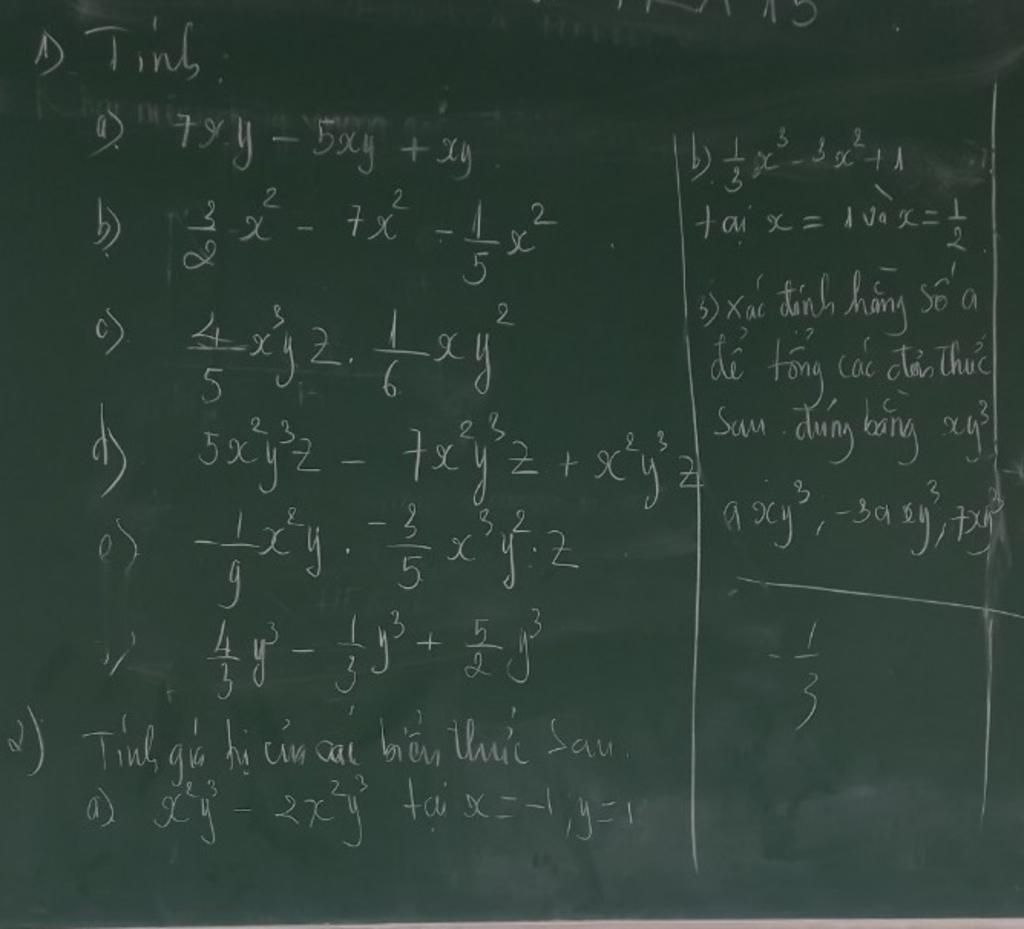 15
1) Tính:
a) 7xy - 5xy + xy
b) 3/2 x² - 7x² - 1/5 x²
c) 4/5 x³yz . 1/6 xy²
d) 5x²y³z - 7x²y³z + x²y³z
e) -1/9 x²y . -3/5 x³y² . z
4/3 y³ - 1/3 y³ + 5/2 y³
2) Tính giá trị của các biểu thức sau.
a) x²y³ - 2x²y³ tại x = -1, y = 1
b) 1/3 x³ - 3x² + 1
tại x = 1 và x = 1/2
3) Xác định hằng số a
để tổng các đơn thức
sau đúng bằng xy³
axy³, -3axy³, 7xy³
- 1/3